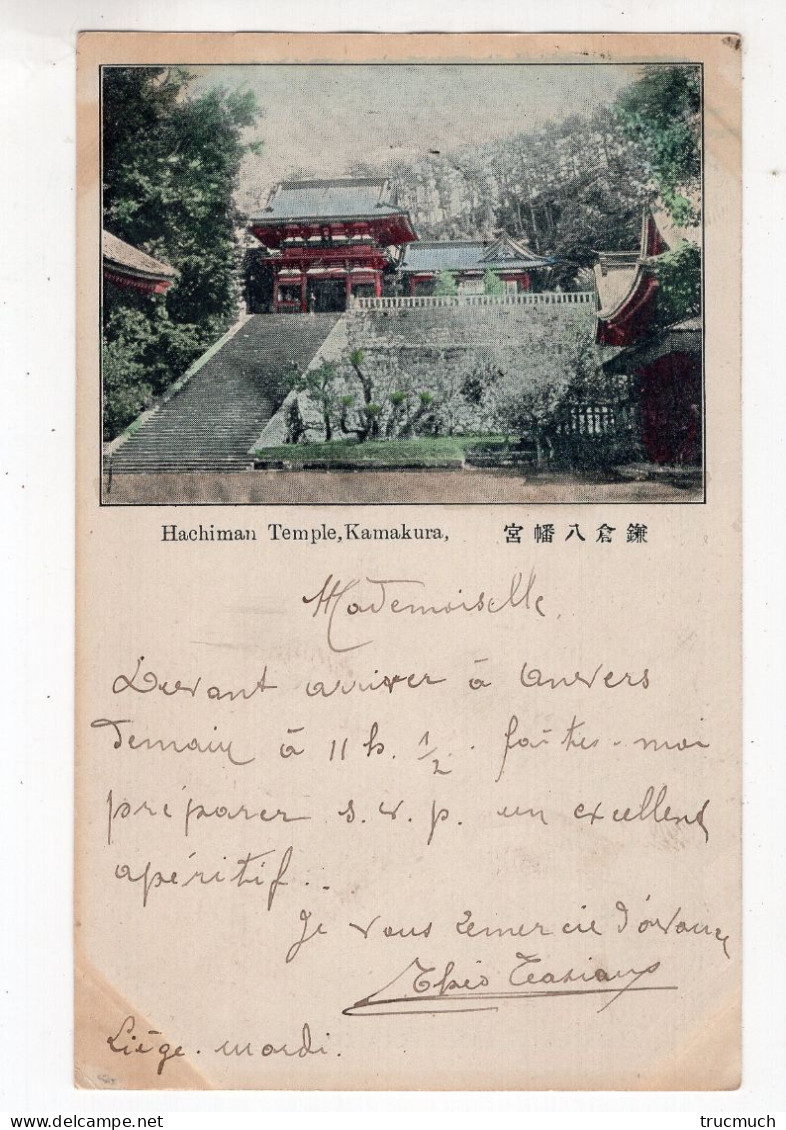 Hachiman Temple, Kamakura, 宮幡八倉鎌
Mademoiselle,
Devant arriver à Anvers
demain à 11 h. 1/2. faites-moi
préparer s.v.p. un excellent
apéritif..
Je vous remercie d'avance
Théo
Liège. mardi.
trucmuch
Delcampe.net